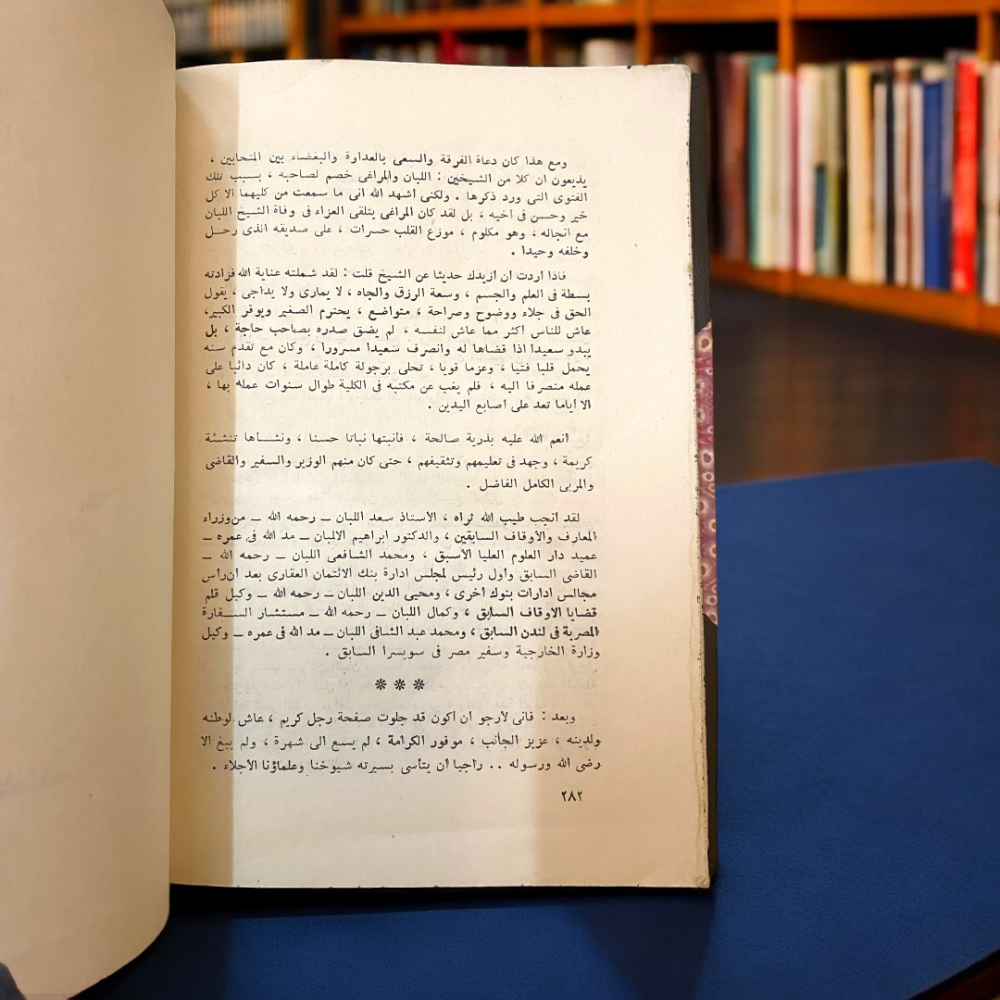 ومع هذا كان دعاة الفرقة والسعى بالعداوة والبغضاء بين المتحابين ،
يذيعون ان كلا من الشيخين : اللبان والمراغى خصم لصاحبه ، بسبب تلك
الفتوى التى ورد ذكرها . ولكنى اشهد الله انى ما سمعت من كليهما الا كل
خير وحسن فى اخيه ، بل لقد كان المراغى يتلقى العزاء فى وفاة الشيخ اللبان
مع انجاله ، وهو مكلوم ، موزع القلب حسرات ، على صديقه الذى رحل
وخلفه وحيدا .
فاذا اردت ان ازيدك حديثا عن الشيخ قلت : لقد شملته عناية الله فزادته
بسطة فى العلم والجسم ، وسعة الرزق والجاه ، لا يمارى ولا يداجى ، يقول
الحق فى جلاء ووضوح وصراحة ، متواضع ، يحترم الصغير ويوقر الكبير،
عاش للناس اكثر مما عاش لنفسه ، لم يضق صدره بصاحب حاجة ، بل
يبدو سعيدا اذا قضاها له وانصرف سعيدا مسرورا ، وكان مع تقدم سنه
يحمل قلبا فتيا ، وعزما قويا ، تحلى برجولة كاملة عاملة ، كان دائبا على
عمله منصرفا اليه ، فلم يغب عن مكتبه فى الكلية طوال سنوات عمله بها ،
الا أياما تعد على اصابع اليدين .
انعم الله عليه بذرية صالحة ، فأنبتها نباتا حسنا ، ونشأها تنشئة
كريمة ، وجهد فى تعليمهم وتثقيفهم ، حتى كان منهم الوزير والسفير والقاضى
والمربى الكامل الفاضل .
لقد انجب طيب الله ثراه ، الأستاذ سعد اللبان ــ رحمه الله ــ من وزراء
المعارف والأوقاف السابقين ، والدكتور ابراهيم اللبان ــ مد الله فى عمره ــ
عميد دار العلوم العليا الأسبق ، ومحمد الشافعى اللبان ــ رحمه الله ــ
القاضى السابق وأول رئيس لمجلس ادارة بنك الائتمان العقارى بعد ان رأس
مجالس ادارات بنوك اخرى ، ومحيى الدين اللبان ــ رحمه الله ــ وكيل قلم
قضايا الاوقاف السابق ، وكمال اللبان ــ رحمه الله ــ مستشار السفارة
المصرية فى لندن السابق ، ومحمد عبد الشافى اللبان ــ مد الله فى عمره ــ وكيل
وزارة الخارجية وسفير مصر فى سويسرا السابق .
❊ ❊ ❊
وبعد : فانى لأرجو ان اكون قد جلوت صفحة رجل كريم ، عاش لوطنه
ولدينه ، عزيز الجانب ، موفور الكرامة ، لم يسع الى شهرة ، ولم يبغ الا
رضى الله ورسوله .. راجيا ان يتأسى بسيرته شيوخنا وعلماؤنا الأجلاء .
٢٨٢